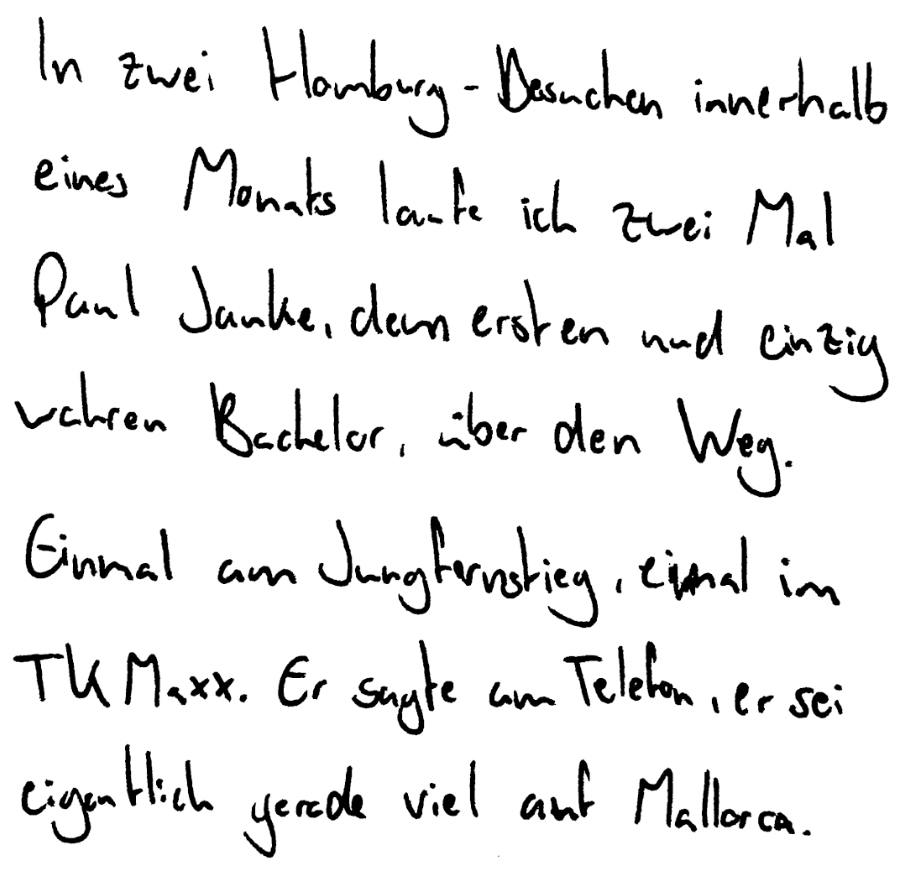 In zwei Hamburg-Besuchen innerhalb
eines Monats laufe ich zwei Mal
Paul Janke, dem ersten und einzig
wahren Bachelor, über den Weg.
Einmal am Jungfernstieg, einmal im
TK Maxx. Er sagte am Telefon, er sei
eigentlich gerade viel auf Mallorca.